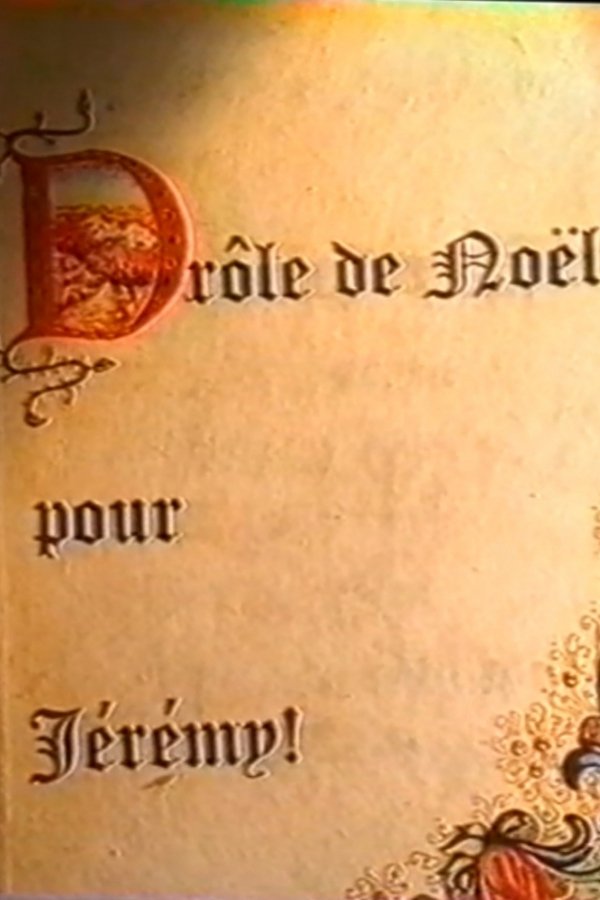 Drôle de Noël
pour
Jérémy!